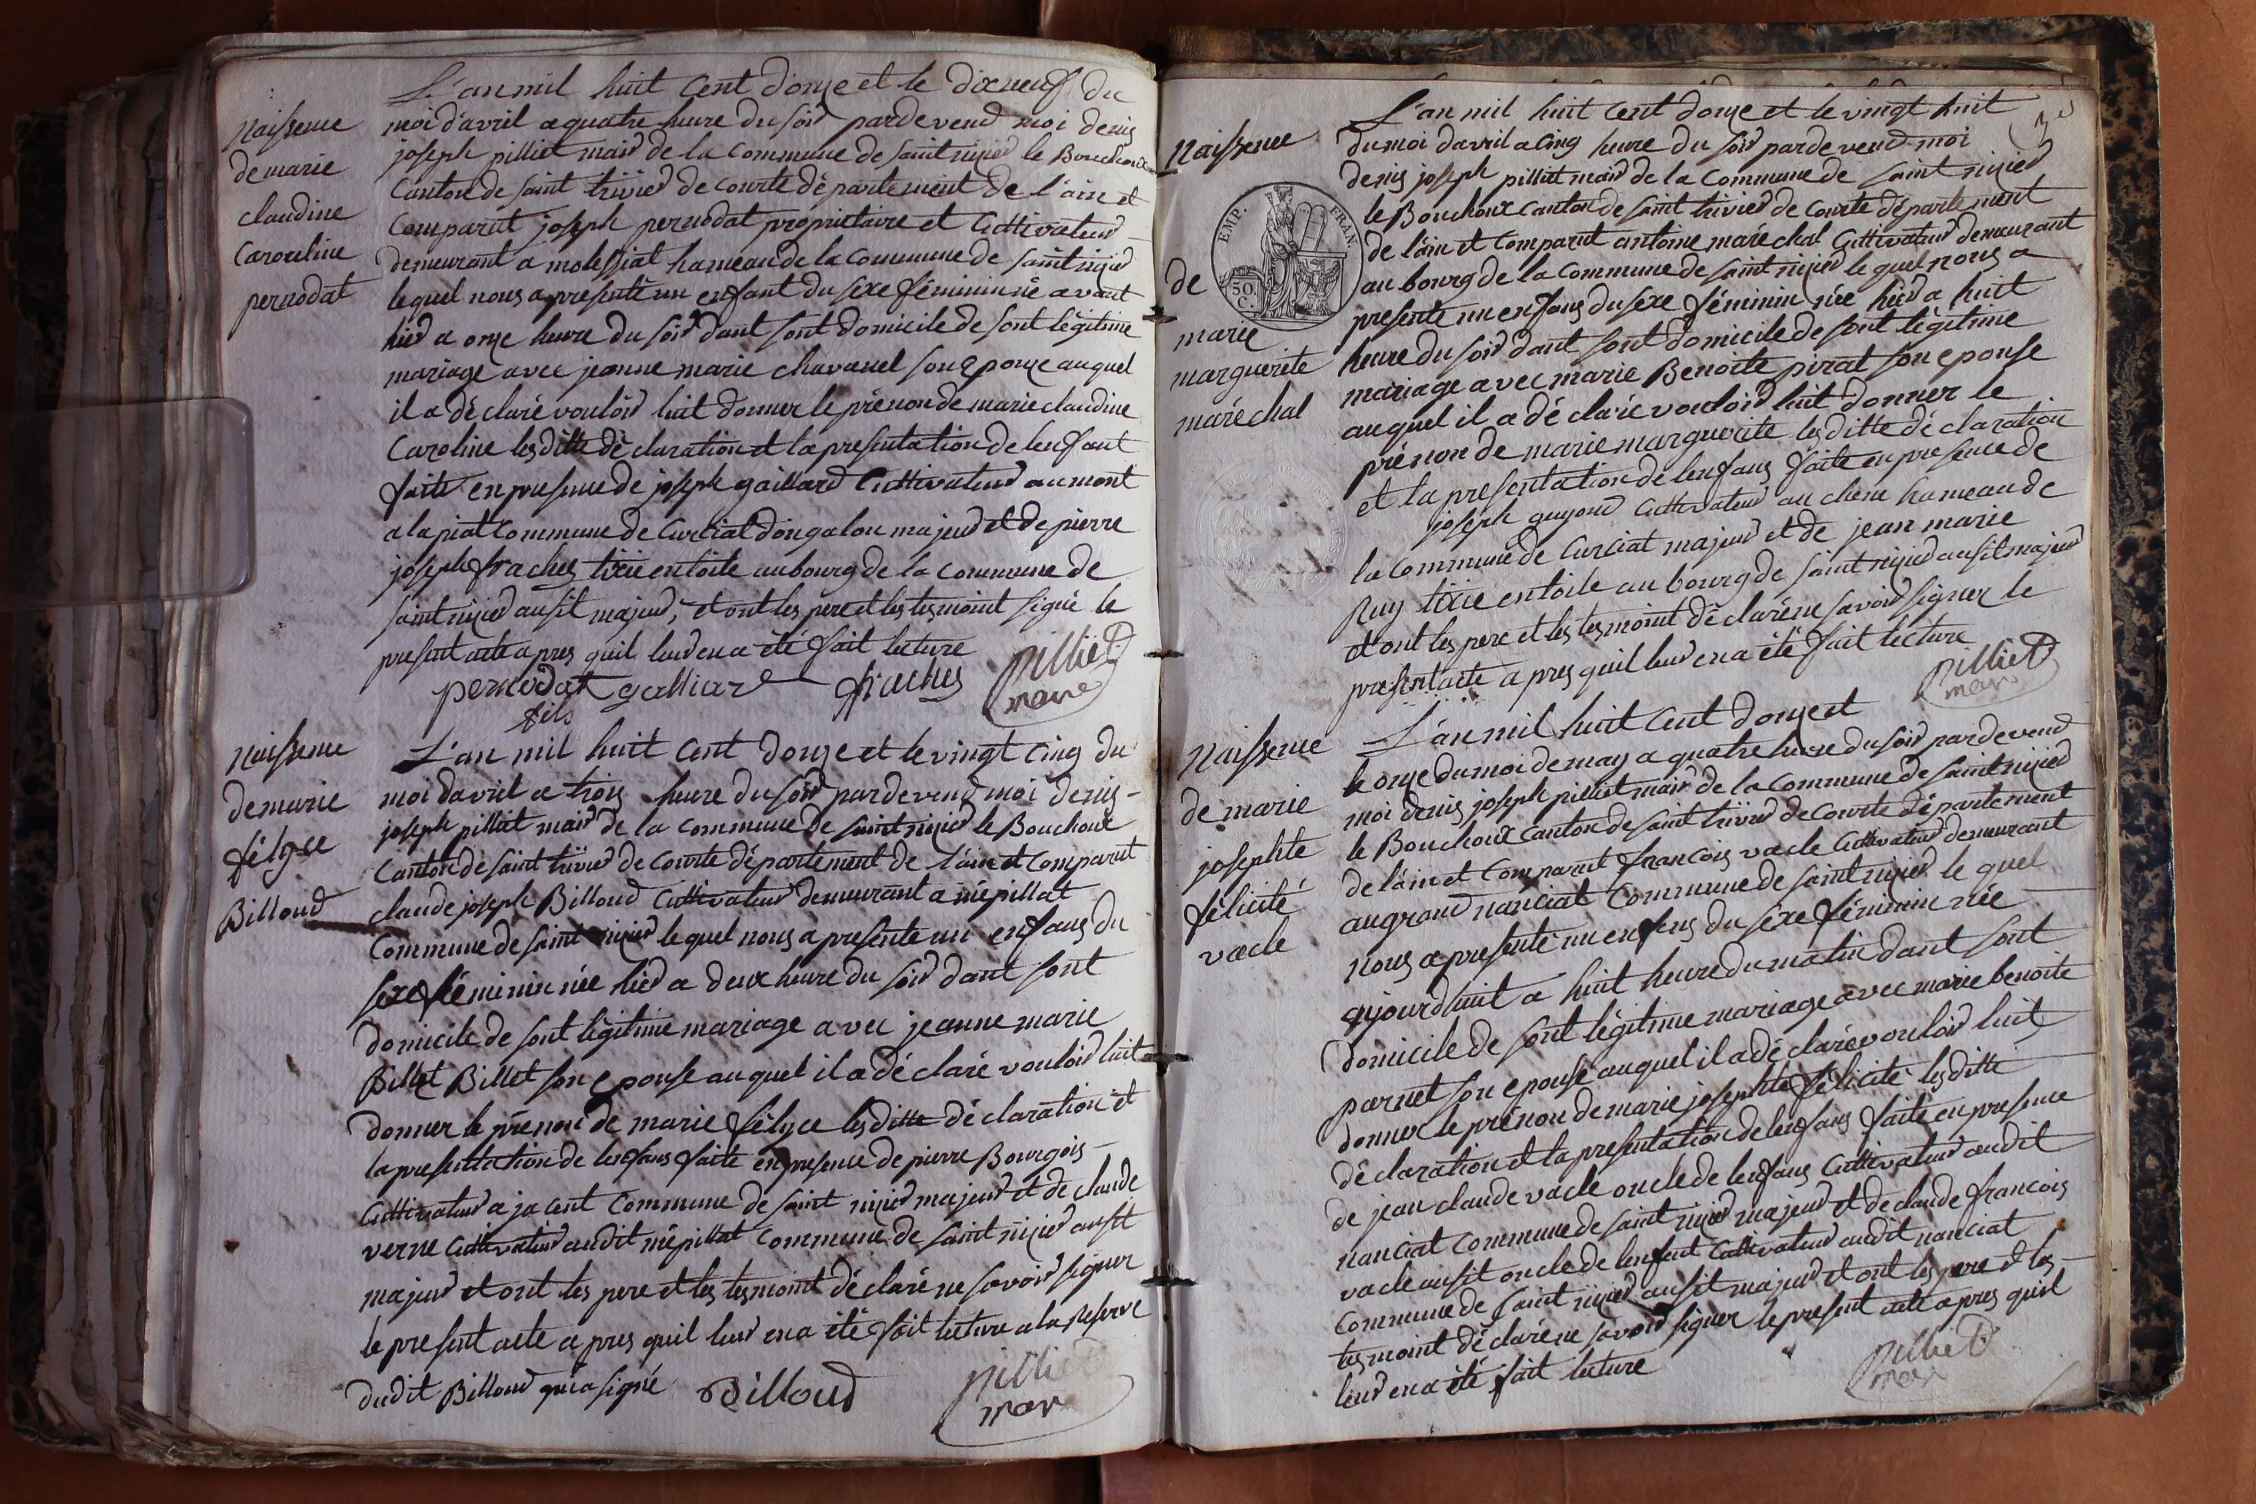 Naissence
de marie
claudine
Carouline
pernodat
L'an mil huit Cent douze et le dixneuf du
moi d'avril a quatre heure du soir pardevend moi denis
joseph pilliet mair de la Commune de saint nizier le Bouchoux
Canton de saint trivier de Courte département de l'ain et
Comparut joseph pernodat propriétaire et Cuttivateur
demeurant a molessiat hameau de la Commune de saint nizier
lequel nous a presenté un enfant du sexe féminin né avant
hier a onze heure du soir dant sont domicile de sont légitime
mariage avec jeanne marie chavanel son Epouze auquel
il a déclaré vouloir luit donner le prénon de marie claudine
Caroline lesditte déclaration et la presentation de lenfant
faite en presence de joseph gaillard Cuttivateur au mont
a la piat Commune de Curciat dongalon majeur et de pierre
joseph fraches tixie en toile au bourg de la Commune de
saint nizier ausit majeur, et ont les père et les tesmoint signé le
present acte apres quil leur en a été fait lecture
pernodat galliard fraches pilliet
fils maire
Naissence
de marie
félyce
Billoud
L'an mil huit Cent douze et le vingt Cinq du
moi davril a trois heure du soir pardevend moi denis
joseph pilliet mair de la Commune de saint nizier le Bouchoux
Canton de saint trivier de Courte département de l'ain et Comparut
claude joseph Billoud Cuttivateur demeurant a mépillat
Commune de saint nizier lequel nous a presente un enfans du
sexe féminin née hier a deux heure du soir dant sont
domicile de sont légitime mariage avec jeanne marie
Billet Billet son Epouse auquel il a déclaré vouloir luit
donner le prénon de marie félyce lesditte déclaration et
la presentation de lenfans faite en presence de pierre Bourgois
Cuttivateur a jacent Commune de saint nizier majeur et de claude
verne Cuttivateur audit mépillat Commune de saint nizier ausit
majeur et ont les pere et les tesmoint déclaré ne savoir signer
le present acte apres quil leur en a été fait lecture a la reserve
dudit Billoud qui a signé Billoud pilliet
mair
Naissence
de
marie
marguerite
maréchal
EMP. FRAN.
50
C.
L'an mil huit Cent douze et le vingt huit
du moi davril a Cinq heure du soir pardevend moi
denis joseph pilliet mair de la Commune de saint nizier
le Bouchoux Canton de saint trivier de Courte département
de l'ain et Comparut antoine maréchal Cuttivateur demeurant
au bourg de la Commune de saint nizier lequel nous a
presente un enfans du sexe féminin née hier a huit
heure du soir dant sont domicile de sont légitime
mariage avec marie Benoite pirat son epouse
auquel il a déclaré vouloir luit donner le
prénon de marie marguerite lesditte déclaration
et la presentation de lenfans faite en presence de
joseph guyond Cuttivateur au chene hameau de
la Commune de Curciat majeur et de jean marie
Ruy tixie en toile au bourg de saint nizier ausit majeur
et ont les pere et les tesmoint déclaré ne savoir signer le
present acte apres quil leur en a été fait lecture
pilliet
mair
Naissence
de marie
josephte
félicité
vacle
L'an mil huit Cent douze et
le onze du moi de may a quatre heure du soir pardevend
moi denis joseph pilliet mair de la Commune de saint nizier
le Bouchoux Canton de saint trivier de Courte département
de l'ain et Comparut francois vacle Cuttivateur demeurant
au grand nanciat Commune de saint nizier le quel
nous a presenté un enfens du sexe féminin née
aujourdhuit a huit heure du matin dant sont
domicile de sont légitime mariage avec marie benoite
parnet son epouse auquel il a déclaré vouloir luit
donner le prénon de marie josephte félicité lesditte
déclaration et la presentation de lenfans faite en presence
de jean claude vacle oncle de lenfans Cuttivateur audit
nanciat Commune de saint nizier majeur et de claude francois
vacle ausit oncle de lenfent Cuttivateur audit nanciat
Commune de saint nizier ausit majeur et ont les pere et les
tesmoint déclaré ne savoir signer le present acte apres quil
leur en a été fait lecture
pilliet
mair